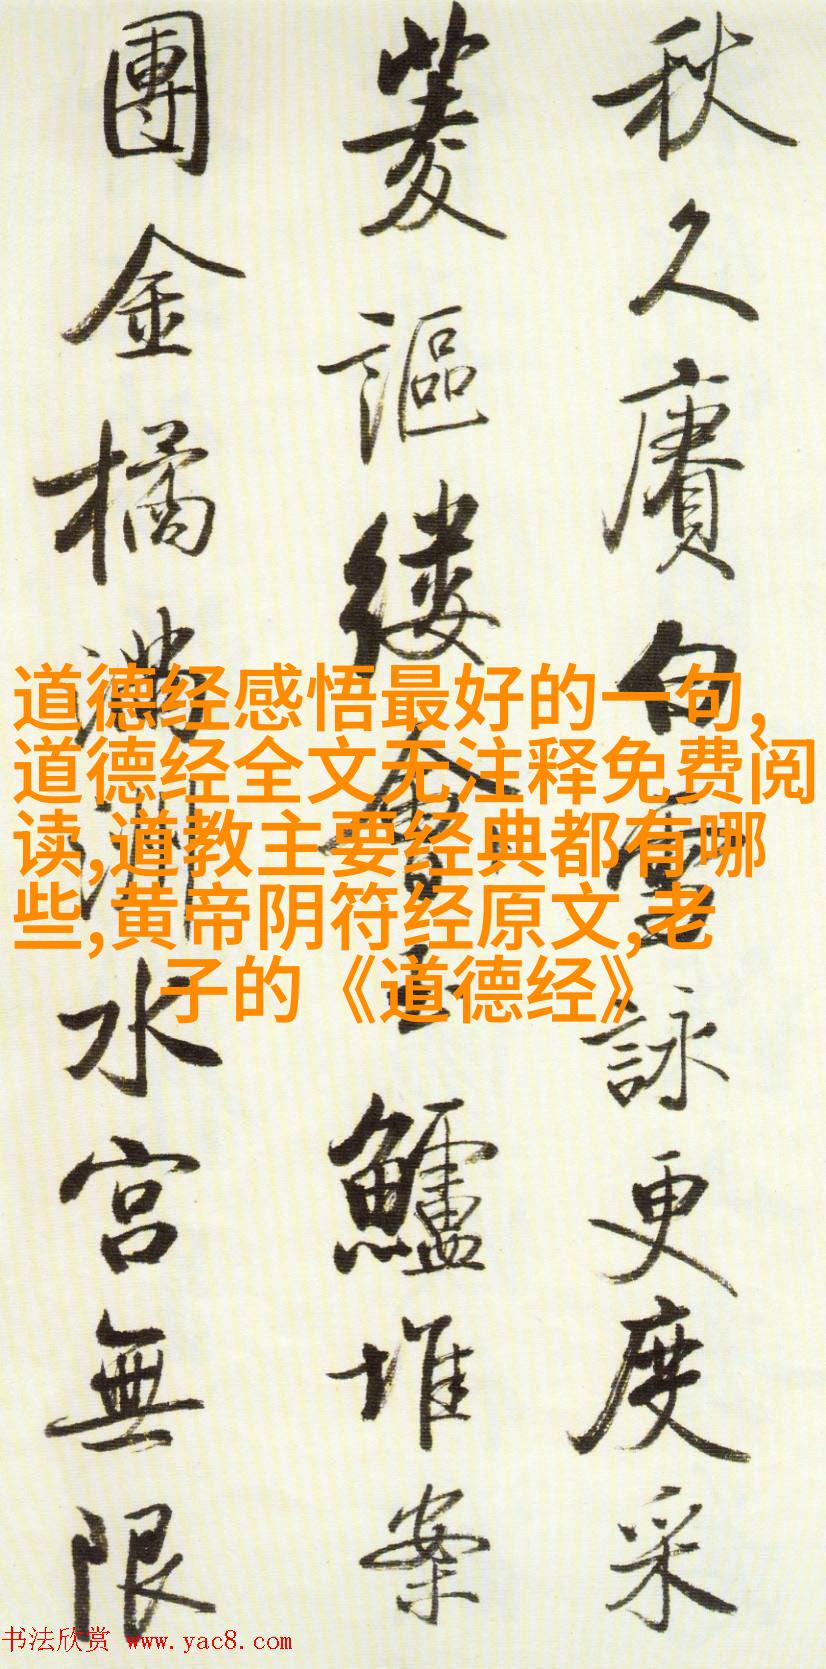 秋久賡白雪詠更度采
菱謳縷會玉鱸堆案
團金橘滿洲水宮無限
道德经感悟最好的一句,
道德经全文无注释免费阅
读,道教主要经典都有哪
些,黄帝阴符经原文,老
子的《道德经》
书法欣赏 www.yac8.com